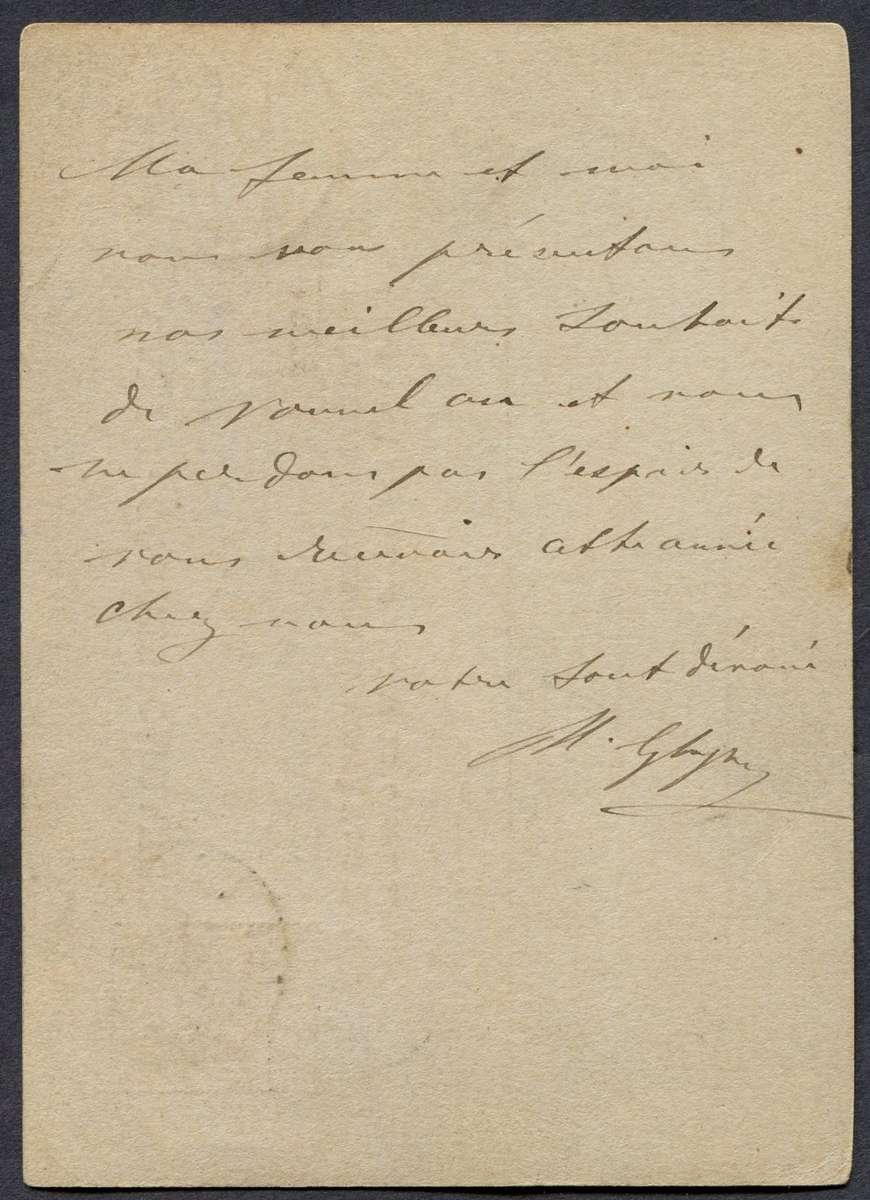 Ma femme et moi
nous vous présentons
nos meilleurs souhaits
de nouvel an et nous
ne perdons pas l'espoir de
vous recevoir cette année
chez nous
votre tout dévoué
M.